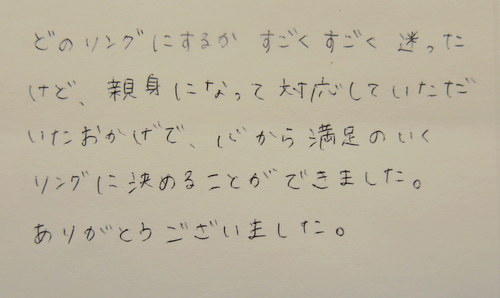 どのリングにするか すごくすごく 迷った
けど、親身になって対応していただ
いたおかげで、心から満足のいく
リングに決めることができました。
ありがとうございました。